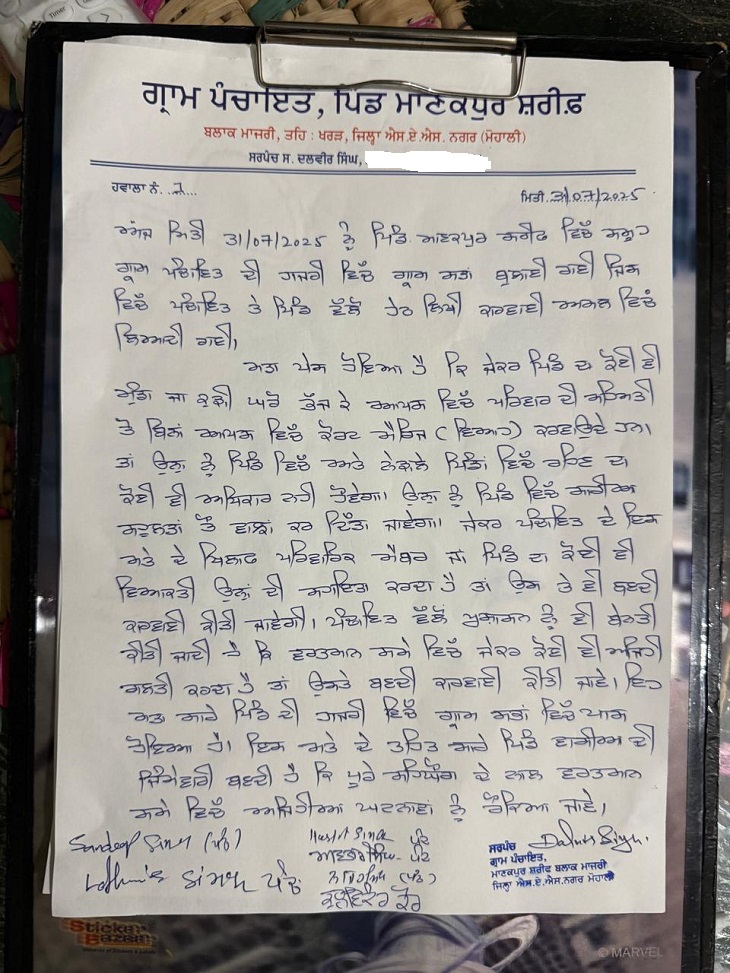 Timer
ਗ੍ਰਾਮ ਪੰਚਾਇਤ, ਪਿੰਡ ਮਾਣਕਪੁਰ ਸ਼ਰੀਫ਼
ਬਲਾਕ ਮਾਜਰੀ, ਤਹਿ : ਖਰੜ, ਜਿਲ੍ਹਾ ਐਸ.ਏ.ਐਸ. ਨਗਰ (ਮੋਹਾਲੀ)
ਸਰਪੰਚ ਸ. ਦਲਵੀਰ ਸਿੰਘ,
ਹਵਾਲਾ ਨੰ. 1
ਮਿਤੀ 31/07/2025
ਅੱਜ ਮਿਤੀ 31/07/2025 ਨੂੰ ਪਿੰਡ ਮਾਣਕਪੁਰ ਸਰੀਫ ਵਿੱਚ ਸਮੂਹ
ਗ੍ਰਾਮ ਪੰਚਾਇਤ ਦੀ ਹਾਜਰੀ ਵਿੱਚ ਗ੍ਰਾਮ ਸਭਾ ਬੁਲਾਈ ਗਈ ਜਿਸ
ਵਿੱਚ ਪੰਚਾਇਤ ਤੇ ਪਿੰਡ ਵੱਲੋਂ ਹੇਠ ਲਿਖੀ ਕਾਰਵਾਈ ਅਮਲ ਵਿੱਚ
ਲਿਆਦੀ ਗਈ।
ਮਤਾ ਪੇਸ਼ ਹੋਇਆ ਹੈ ਕਿ ਜੇਕਰ ਪਿੰਡ ਦਾ ਕੋਈ ਵੀ
ਮੁੰਡਾ ਜਾ ਕੁੜੀ ਘਰੋਂ ਭੱਜ ਕੇ ਆਪਸ ਵਿੱਚ ਪਰਿਵਾਰ ਦੀ ਸਹਿਮਤੀ
ਤੋਂ ਬਿਨਾਂ ਆਪਸ ਵਿੱਚ ਕੋਰਟ ਮੈਰਿਜ (ਵਿਆਹ) ਕਰਵਾਉਂਦੇ ਹਨ।
ਤਾਂ ਉਨਾ ਨੂੰ ਪਿੰਡ ਵਿੱਚ ਅਤੇ ਨੇੜਲੇ ਪਿੰਡਾਂ ਵਿੱਚ ਰਹਿਣ ਦਾ
ਕੋਈ ਵੀ ਅਧਿਕਾਰ ਨਹੀ ਹੋਵੇਗਾ। ਉਨਾ ਨੂੰ ਪਿੰਡ ਵਿੱਚ ਸਾਰੀਆ
ਸਹੂਲਤਾਂ ਤੋਂ ਵਾਝਾਂ ਕਰ ਦਿੱਤਾ ਜਾਵੇਗਾ। ਜੇਕਰ ਪੰਚਾਇਤ ਦੇ ਇਸ
ਮਤੇ ਦੇ ਖਿਲਾਫ ਪਰਿਵਾਰਿਕ ਮੈਂਬਰ ਜਾਂ ਪਿੰਡ ਦਾ ਕੋਈ ਵੀ
ਵਿਅਕਤੀ ਉਨਾਂ ਦੀ ਸਹਾਇਤਾ ਕਰਦਾ ਹੈ ਤਾਂ ਉਸ ਤੇ ਵੀ ਬਣਦੀ
ਕਾਰਵਾਈ ਕੀਤੀ ਜਾਵੇਗੀ। ਪੰਚਾਇਤ ਵੱਲੋਂ ਪ੍ਰਸ਼ਾਸਨ ਨੂੰ ਵੀ ਬੇਨਤੀ
ਕੀਤੀ ਜਾਦੀ ਹੈ ਕਿ ਵਰਤਮਾਨ ਸਮੇ ਵਿੱਚ ਜੇਕਰ ਕੋਈ ਵੀ ਅਜਿਹੀ
ਗਲਤੀ ਕਰਦਾ ਹੈ ਤਾਂ ਉਸਤੇ ਬਣਦੀ ਕਾਰਵਾਈ ਕੀਤੀ ਜਾਵੇ। ਇਹ
ਮਤਾ ਸਾਰੇ ਪਿੰਡ ਦੀ ਹਾਜਰੀ ਵਿੱਚ ਗ੍ਰਾਮ ਸਭਾ ਵਿੱਚ ਪਾਸ
ਹੋਇਆ ਹੈ। ਇਸ ਮਤੇ ਦੇ ਤਹਿਤ ਸਾਰੇ ਪਿੰਡ ਵਾਸੀਆ ਦੀ
ਜਿੰਮੇਵਾਰੀ ਬਣਦੀ ਹੈ ਕਿ ਪੂਰੇ ਸਹਿਯੋਗ ਦੇ ਨਾਲ ਵਰਤਮਾਨ
ਸਮੇ ਵਿੱਚ ਅਜਿਹੀਆ ਘਟਨਾਵਾਂ ਨੂੰ ਰੋਕਿਆ ਜਾਵੇ।
Sandeep Singh (ਪੰਚ)
Singh ਪੰਚ
Singh ਪੰਚ
ਪੰਚ
(ਪੰਚ)
ਕੁਲਵਿੰਦਰ ਕੌਰ
Dalvir Singh.
ਸਰਪੰਚ
ਗ੍ਰਾਮ ਪੰਚਾਇਤ,
ਮਾਣਕਪੁਰ ਸ਼ਰੀਫ ਬਲਾਕ ਮਾਜਰੀ
ਜਿਲ੍ਹਾ ਐਸ.ਏ.ਐਸ.ਨਗਰ ਮੋਹਾਲੀ
Sticker
Bazaar
© MARVEL